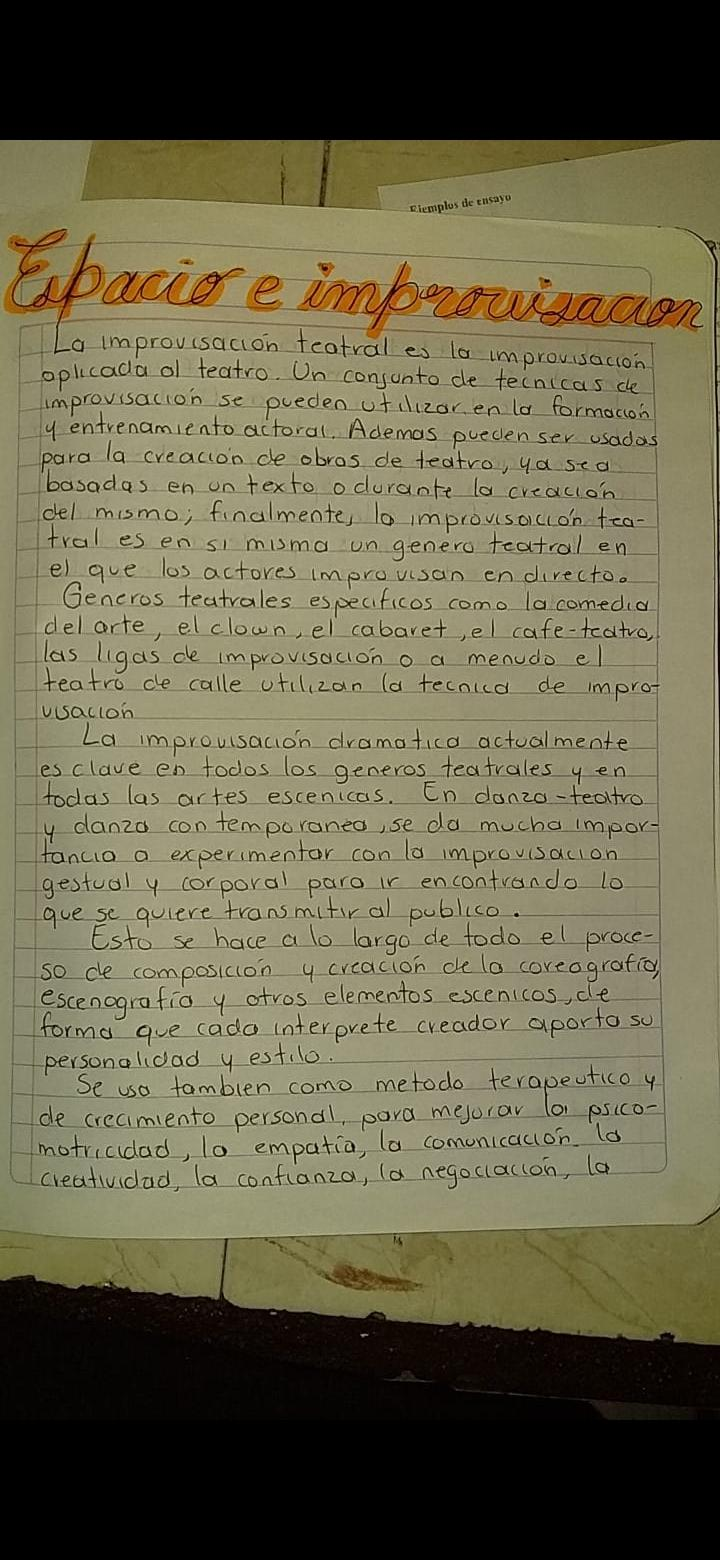 Ejemplos de ensayo
Espacio e improvisacion
La improvisación teatral es la improvisación
aplicada al teatro. Un conjunto de tecnicas de
improvisación se pueden utilizar en la formacion
y entrenamiento actoral. Ademas pueden ser usadas
para la creación de obras de teatro, ya sea
basadas en un texto o durante la creación
del mismo; finalmente, la improvisación tea-
tral es en si misma un genero teatral en
el que los actores improvisan en directo.
Generos teatrales especificos como la comedia
del arte, el clown, el cabaret, el cafe-teatro,
las ligas de improvisación o a menudo el
teatro de calle utilizan la tecnica de impro-
visación
La improvisación dramatica actualmente
es clave en todos los generos teatrales y en
todas las artes escenicas. En danza-teatro
y danza contemporanea, se da mucha impor-
tancia a experimentar con la improvisacion
gestual y corporal para ir encontrando lo
que se quiere transmitir al publico.
Esto se hace a lo largo de todo el proce-
so de composición y creación de la coreografía,
escenografía y otros elementos escenicos, de
forma que cada interprete creador aporta su
personalidad y estilo.
Se usa tambien como metodo terapeutico y
de crecimiento personal, para mejorar la psico-
motricidad, la empatía, la comunicación, la
creatividad, la confianza, la negociación, la